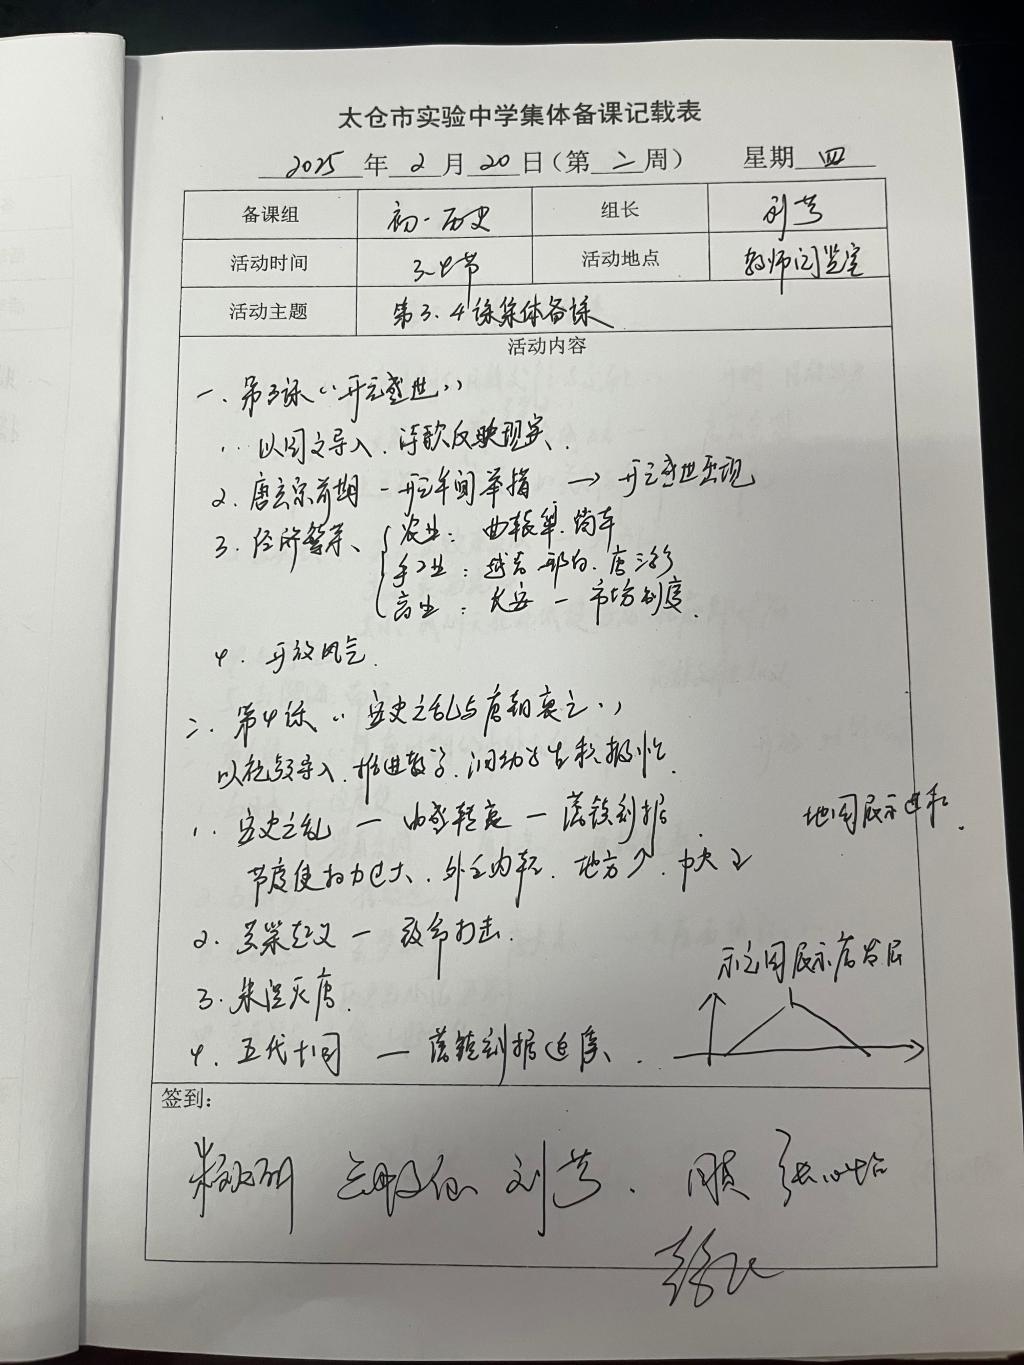 太仓市实验中学集体备课记载表
2025 年 2 月 20 日（第 二 周） 星期 四
备课组 初一历史 组长 刘芳
活动时间 3、4节 活动地点 教师阅览室
活动主题 第3.4课集体备课
活动内容
一、第3课“开元盛世”
1. 以图文导入、诗歌反映现实、
2. 唐玄宗前期 - 开元年间举措 → 开元盛世出现
3. 经济繁荣、
农业： 曲辕犁. 筒车
手工业： 越青 邢白. 唐三彩
商业： 长安 — 市坊制度.
4. 开放风气.
二、第4课“安史之乱与唐朝衰亡”
以视频导入. 推进教学. 调动学生积极性.
1. 安史之乱 — 由盛转衰 — 藩镇割据
地图展示进程.
节度使权力过大、外重内轻. 地方↗. 中央↓
2. 黄巢起义 — 致命打击.
示意图展示唐发展
3. 朱温灭唐.
4. 五代十国 — 藩镇割据延续、.
签到：
刘芳.